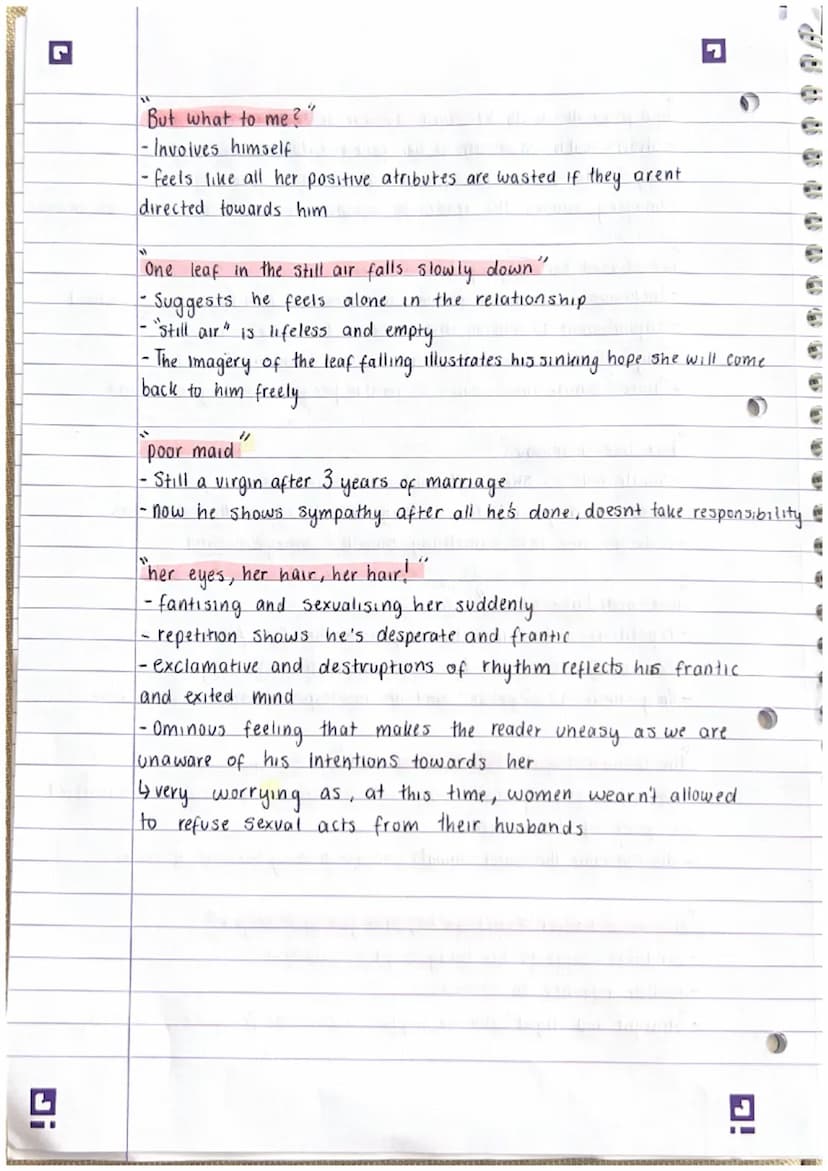 "But what to me?"
- Involves himself
- feels like all her positive atributes are wasted if they arent
directed towards him
"One leaf in the still air falls slowly down"
- Suggests he feels alone in the relationship
- "still air" is lifeless and empty
- The imagery of the leaf falling illustrates his sinking hope she will come
back to him freely
"poor maid"
- Still a virgin after 3 years of marriage
- now he shows sympathy after all he's done, doesnt take responsibility
"her eyes, her hair, her hair!"
- fantising and sexualising her suddenly
- repetition shows he's desperate and frantic
- exclamative and destruptions of rhythm reflects his frantic
and exited mind
- Ominous feeling that makes the reader uneasy as we are
unaware of his intentions towards her
↳ very worrying as, at this time, women wearn't allowed
to refuse sexual acts from their husbands